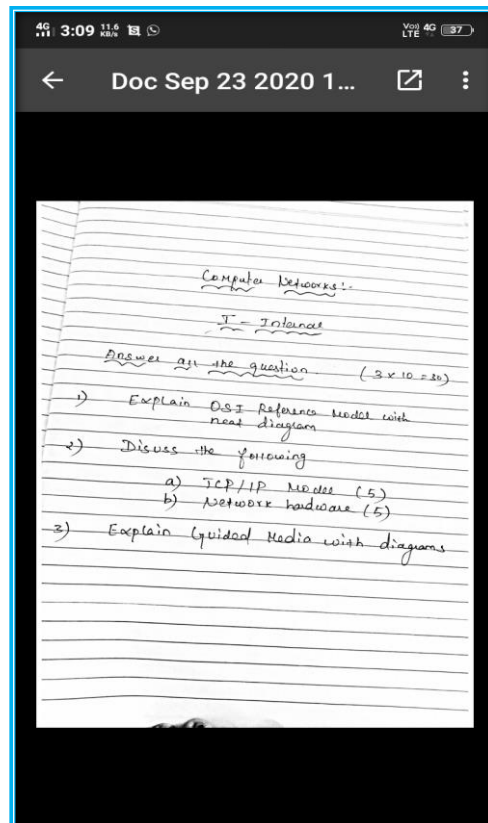 4G 3:09 11.6 KB/s Vo)) LTE 4G 37
Doc Sep 23 2020 1...
Computer Networks:-
I - Internal
Answer all the question. (3 x 10 = 30)
1) Explain OSI Reference Model with
neat diagram
2) Disuss the following
a) TCP/IP Model (5)
b) Network hardware (5)
3) Explain Guided Media with diagrams